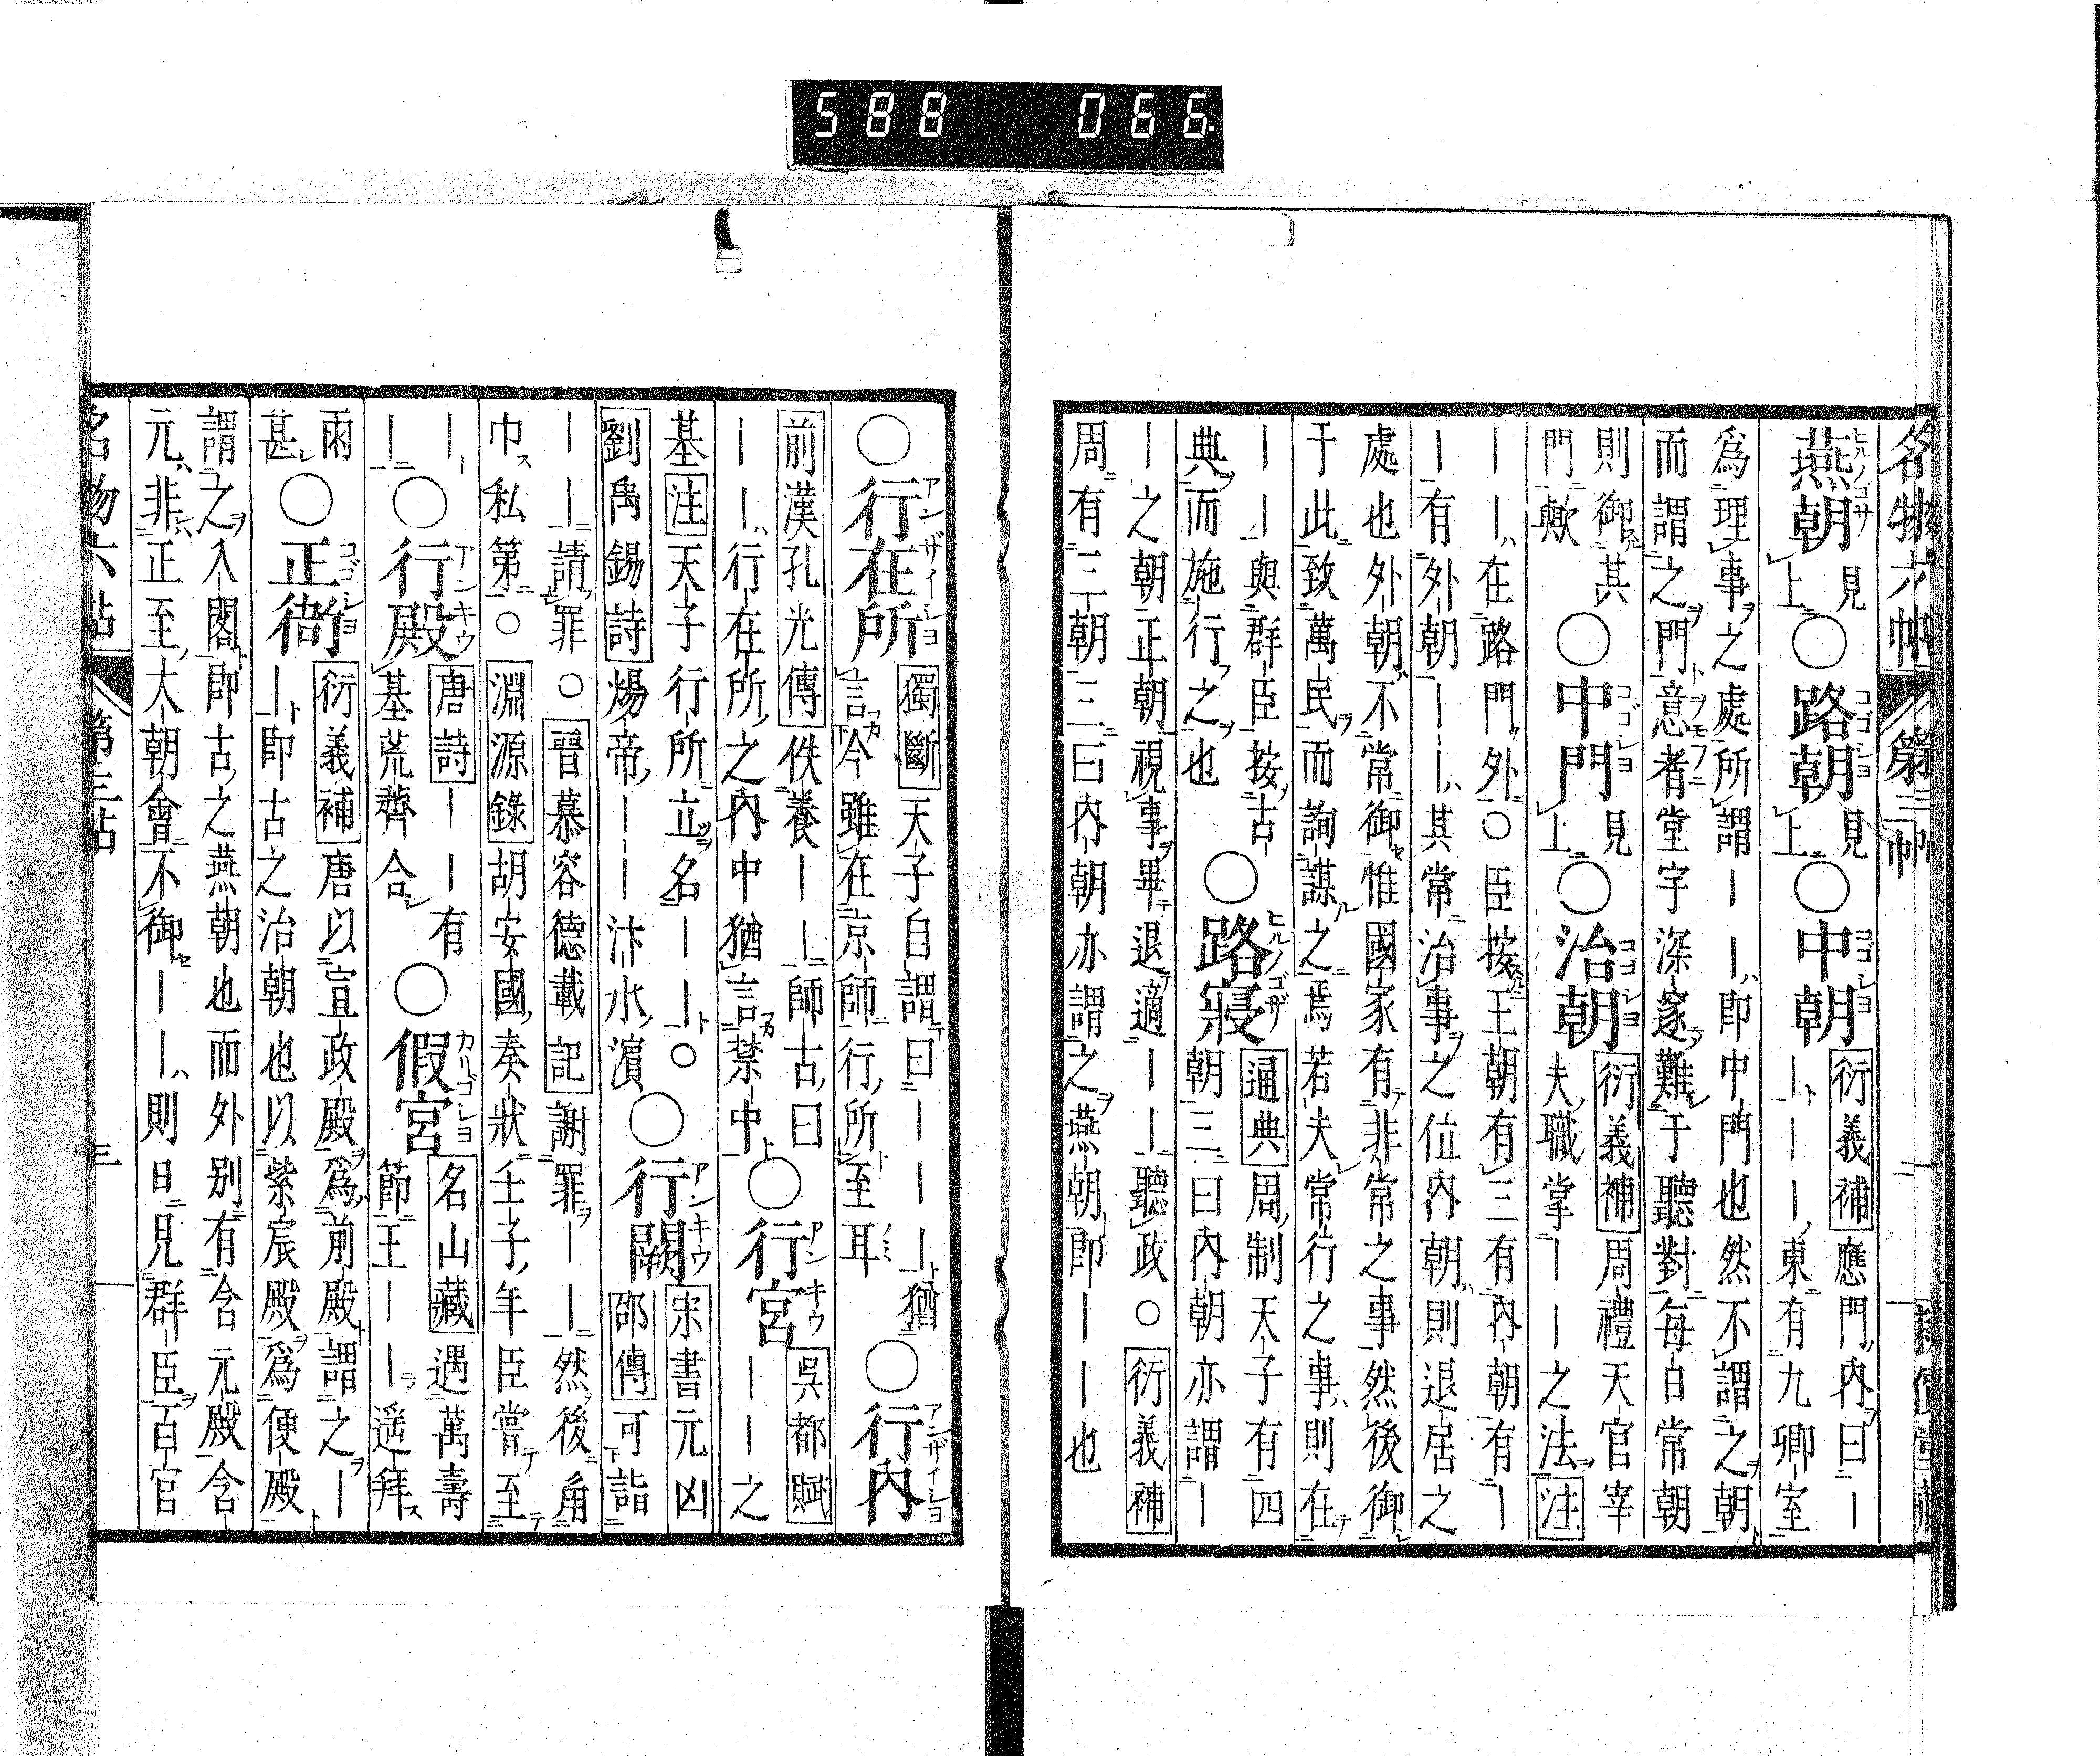 名物六帖 第三帖 二
燕朝ヒルノゴザ 見上 ○路朝コゴショ 見上 ○中朝コゴショ 衍義補應門內曰｜
｜｜東有九卿室
爲理事之處所謂｜｜即中門也然不謂之朝
而謂之門意者堂宇深邃難于聽對每日常朝
則御其
門歟 ○中門コゴショ 見上 ○治朝コゴショ 衍義補周禮天官宰
夫職掌｜｜之法注
｜｜在路門外○臣按王朝有三有內朝有｜
｜有外朝｜｜其常治事之位內朝則退居之
處也外朝不常御惟國家有非常之事然後御
于此致萬民而詢謀之焉若夫常行之事則在
｜｜與群臣按古
典而施行之也 ○路寢ヒルノゴザ 通典周制天子有四
朝三曰內朝亦謂｜
｜之朝正朝視事畢退適｜｜聽政○衍義補
周有三朝三曰內朝亦謂之燕朝即｜｜也
○行在所アンザイショ 獨斷天子自謂曰｜｜｜猶
言今雖在京師行所至耳 ○行內アンザイショ
前漢孔光傳佚養｜｜師古曰
｜｜行在所之內中猶言禁中 ○行宮アンキウ 吳都賦
｜｜之
基注天子行所立名｜｜○
劉禹錫詩煬帝｜｜汴水濱 ○行闕アンキウ 宋書元凶
邵傳可詣
｜｜請罪○晉慕容德載記謝罪｜｜然後角
巾私第○淵源錄胡安國奏狀壬子年臣嘗至
｜
｜ ○行殿アンキウ 唐詩｜｜有
基荒薺合 ○假宮カリゴショ 名山藏遇萬壽
節王｜｜遥拜
雨
甚 ○正衙コゴショ 衍義補唐以宣政殿爲前殿謂之｜
｜即古之治朝也以紫宸殿爲便殿
謂之入閣即古之燕朝也而外別有含元殿含
元非正至大朝會不御｜｜則日見群臣百官
名物六帖 第三帖 三